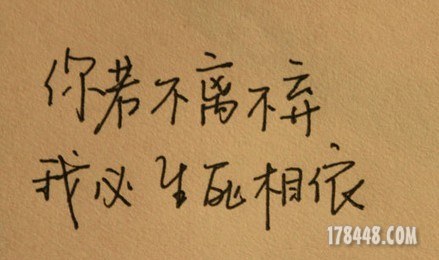 你若不离不弃
我必生死相依
178448.COM